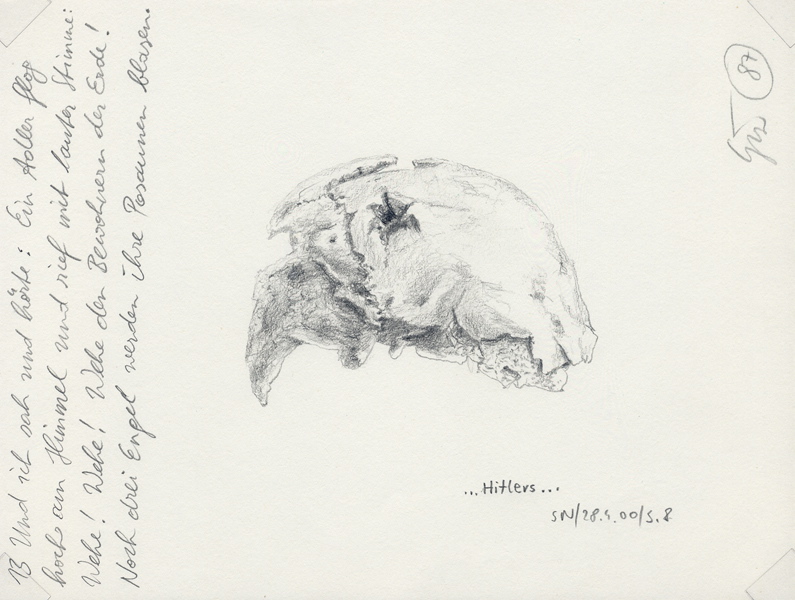 13 Und ich sah und hörte: Ein Adler flog
hoch am Himmel und rief mit lauter Stimme:
Wehe! Wehe! Wehe den Bewohnern der Erde!
Noch drei Engel werden ihre Posaunen blasen.
87
...Hitlers...
SN/28.4.00/S.8